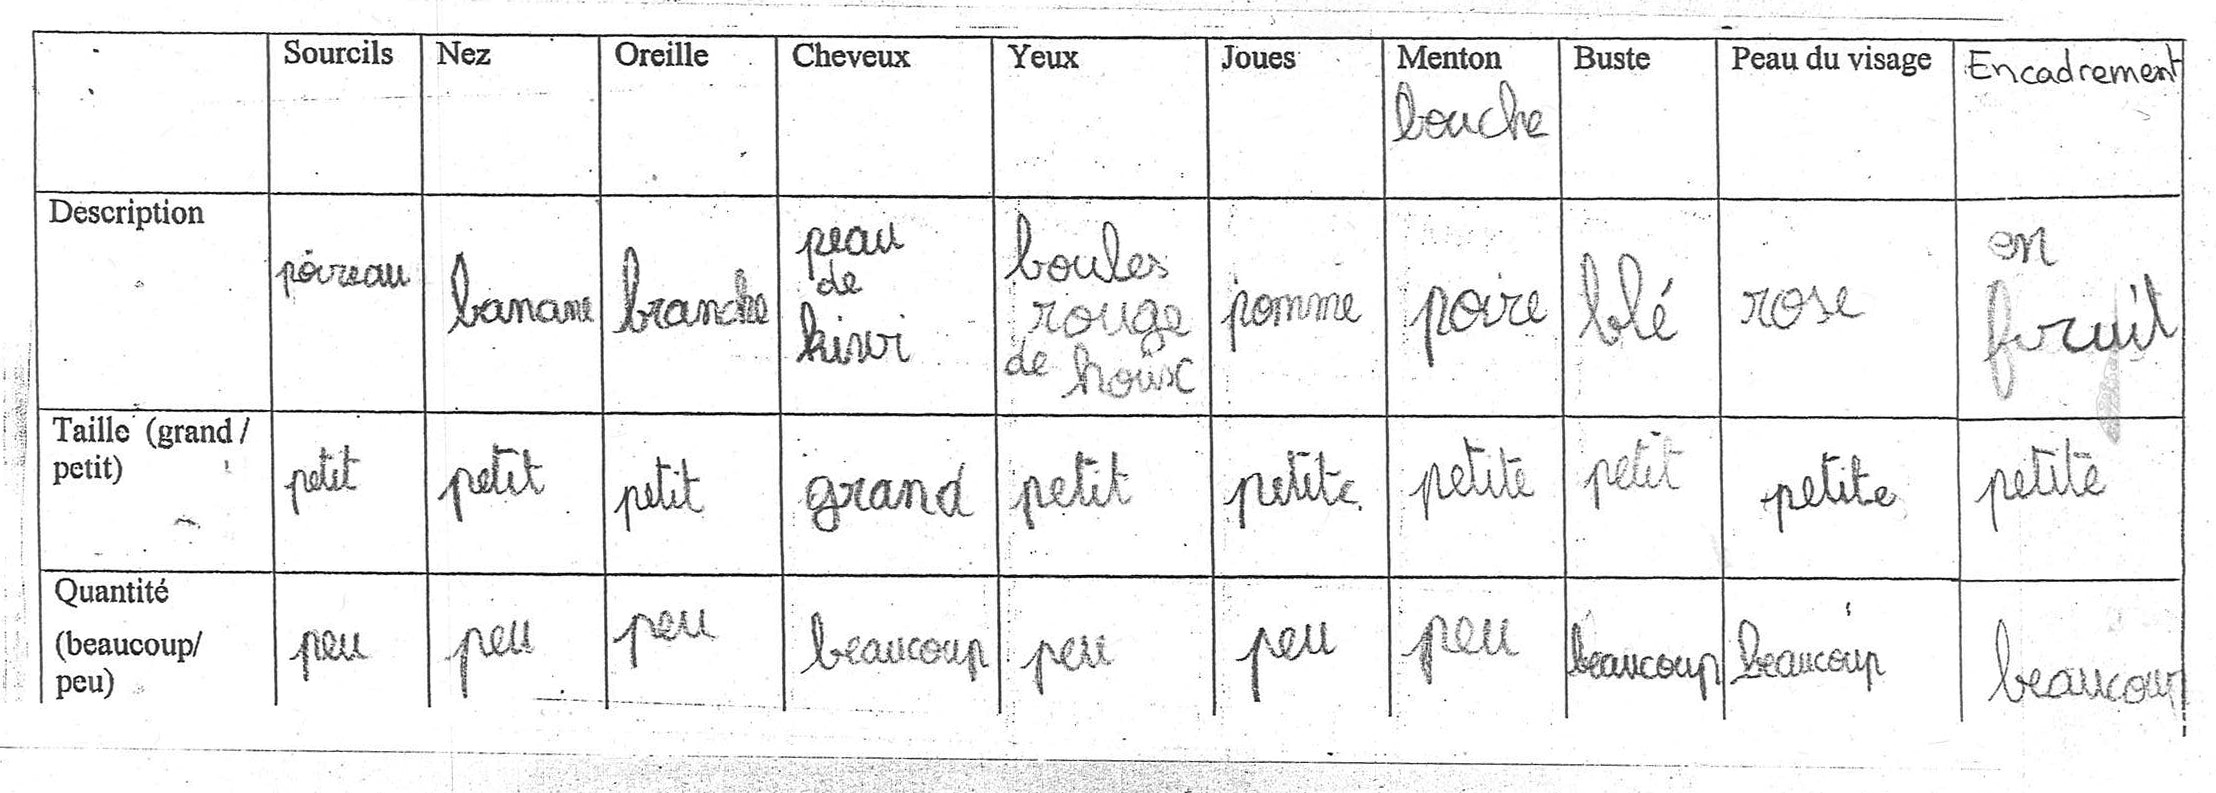 Sourcils Nez Oreille Cheveux Yeux Joues Menton Buste Peau du visage Encadrement
bouche
Description
poireau banane branche peau de kiwi boules rouge de houx pomme poire blé rose en fruit
Taille (grand /
petit)
petit petit petit grand petit petite petite petit petite petite
Quantité
(beaucoup/
peu)
peu peu peu beaucoup peu peu peu beaucoup beaucoup beaucoup